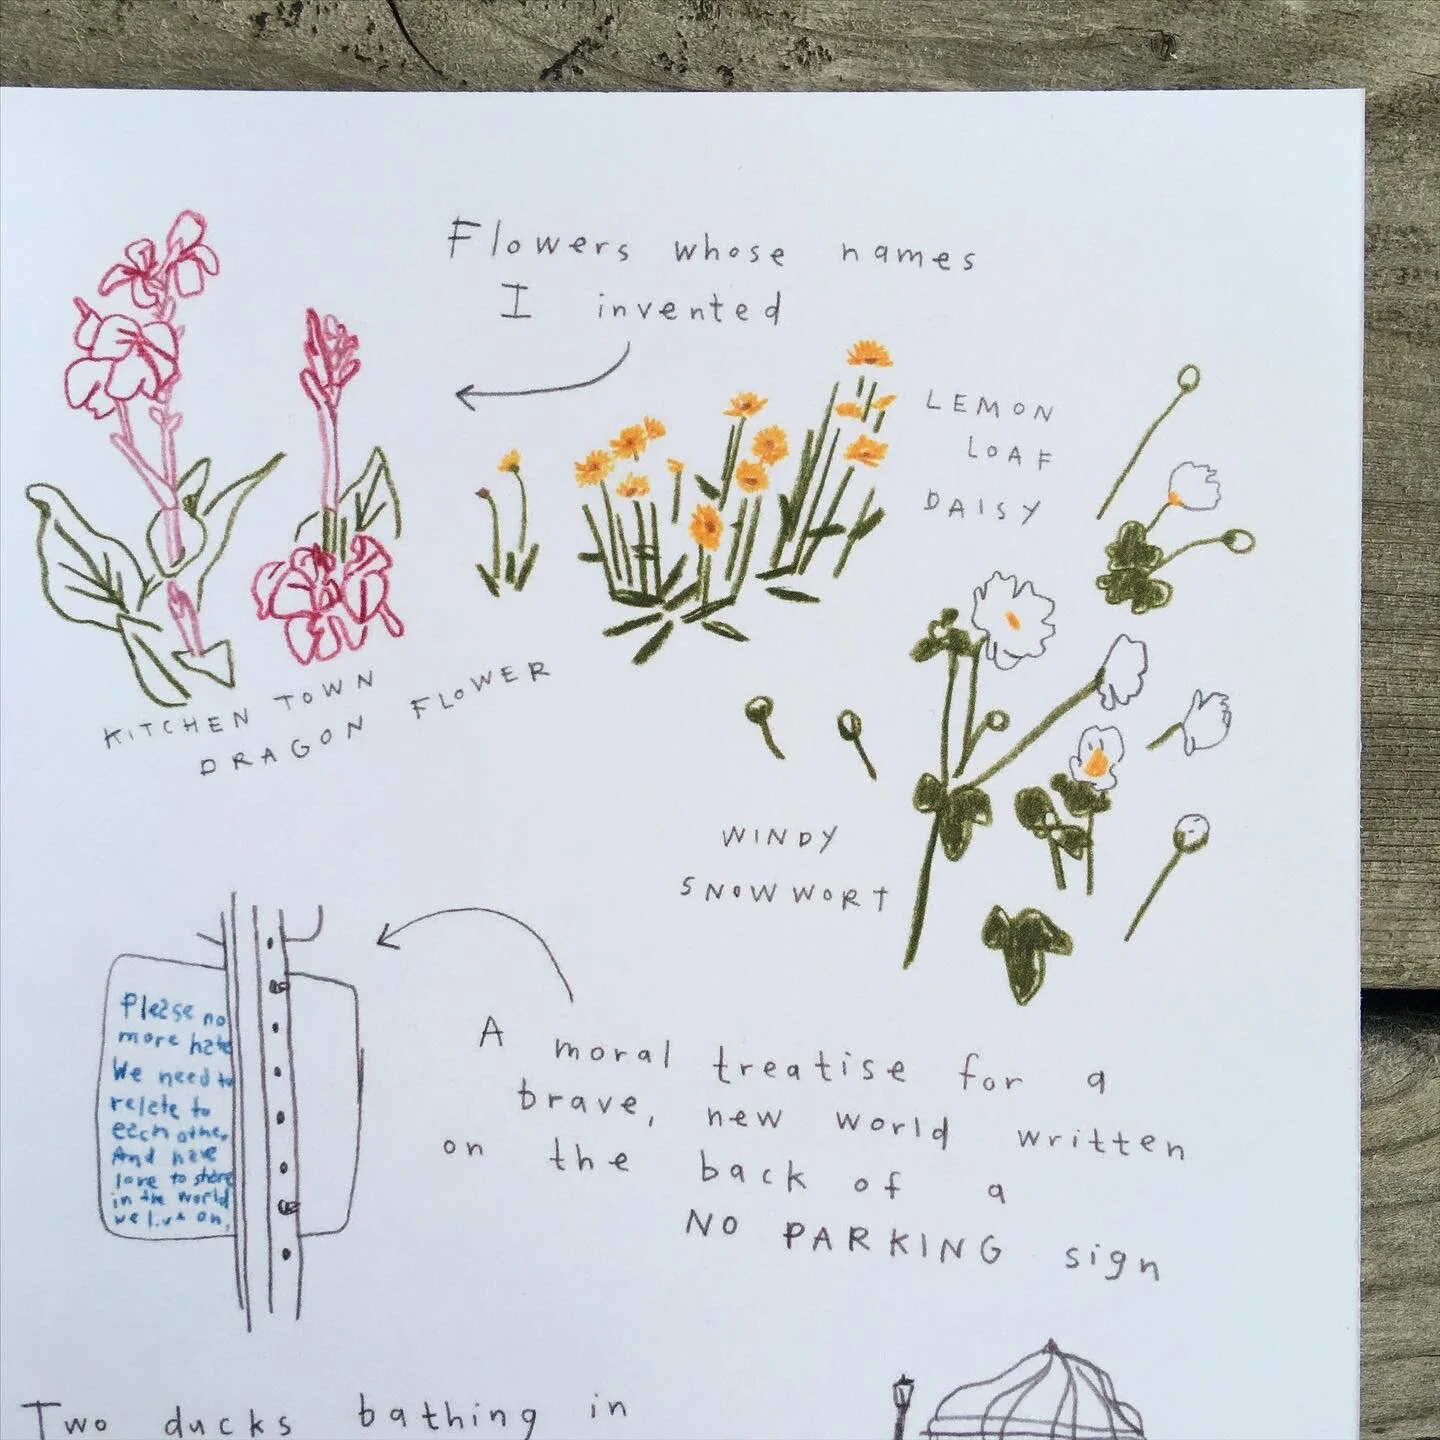 Flowers whose names
I invented
LEMON
LOAF
DAISY
KITCHEN TOWN
DRAGON FLOWER
WINDY
SNOWWORT
Please no
more hate
We need to
relate to
each other,
And have
love to share
in the world
we live on.
A moral treatise for a
brave, new world written
on the back of a
NO PARKING sign
Two ducks bathing in